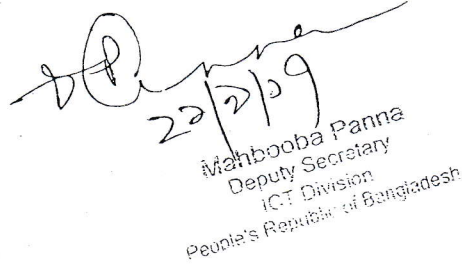 22/2/09
Mahbooba Panna
Deputy Secretary
ICT Division
People's Republic of Bangladesh